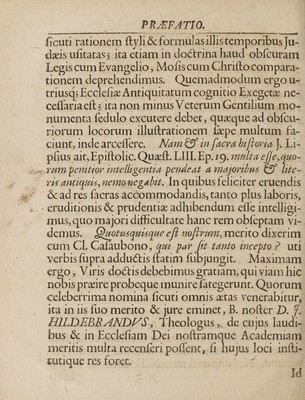 PRÆFATIO.
ſicuti rationem ſtyli & formulas illis temporibus Ju-
dæis uſitatas; ita etiam in doctrina haud obſcuram
Legis cum Evangelio, Moſis cum Chriſto compara-
tionem deprehendimus. Quemadmodum ergo u-
triusq; Eccleſiæ Antiquitatum cognitio Exegetæ ne-
ceſſaria eſt; ita non minus Veterum Gentilium mo-
numenta ſedulo excutere debet, quæque ad obſcu-
riorum locorum illuſtrationem ſæpe multum fa-
ciunt, inde arceſſere. Nam & in ſacra hiſtoria J. Li-
pſius ait, Epiſtolic. Quæſt. LIII. Ep. 19. multa eſſe, quo-
rum penitior intelligentia pendeat a majoribus & lite-
ris antiquis, nemo negabit. In quibus feliciter eruendis
& ad res ſacras accommodandis, tanto plus laboris,
eruditionis & prudentiæ adhibendum eſſe intelligi-
mus, quo majori difficultate hanc rem obſeptam vi-
demus. Quotusquisque eſt noſtrum, merito dixerim
cum Cl. Caſaubono, qui par ſit tanto incepto? uti
verbis ſupra adductis ſtatim ſubjungit. Maximam
ergo, Viris doctis debebimus gratiam, qui viam hic
nobis præire probeque munire ſategerunt. Quorum
celeberrima nomina ſicuti omnis ætas venerabitur,
ita in iis ſuo merito & jure eminet, B. noſter D. J.
HILDEBRANDVS, Theologus, de cujus laudi-
bus & in Eccleſiam Dei noſtramque Academiam
meritis multa recenſeri poſſent, ſi hujus loci inſti-
tutique res foret.
Id